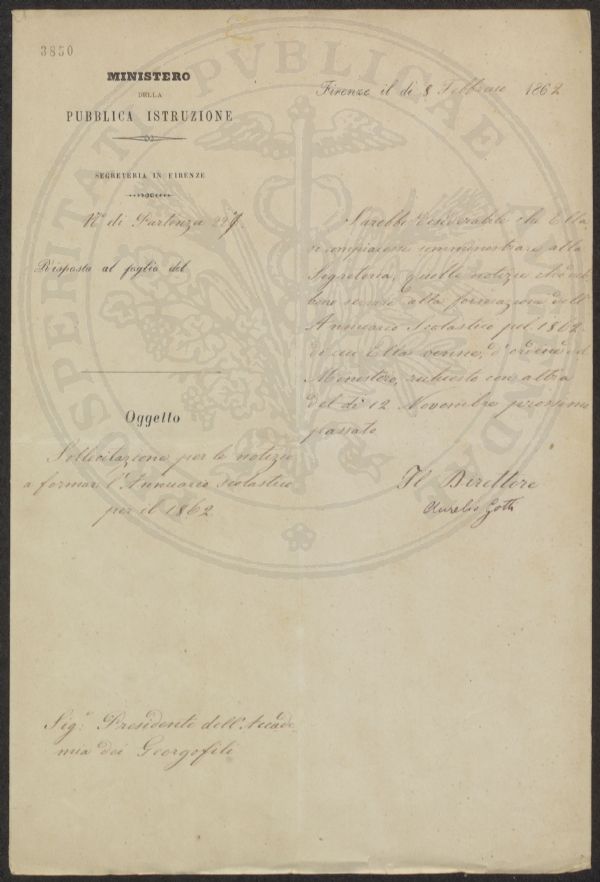 3850
MINISTERO
DELLA
PUBBLICA ISTRUZIONE
SEGRETERIA IN FIRENZE
N.º di Partenza 227
Risposta al foglio del
Oggetto
Sollecitazione per le notizie
a formare l'Annuario scolastico
per il 1862
Sig.r Presidente dell'Accade-
mia dei Georgofili
Firenze il di 8 Febbraio 1862
Sarebbe desiderabile che Ella
si compiacesse somministrare alla
Segreteria, quelle notizie che deb
bono servire alla formazione dell'
Annuario Scolastico pel 1862
di cui Ella venne, d'ordine del
Ministero, richiesto con altra
del di 12 Novembre prossimo
passato
Il Direttore
Aurelio Gotti
PROSPERITATI PVBLICAE